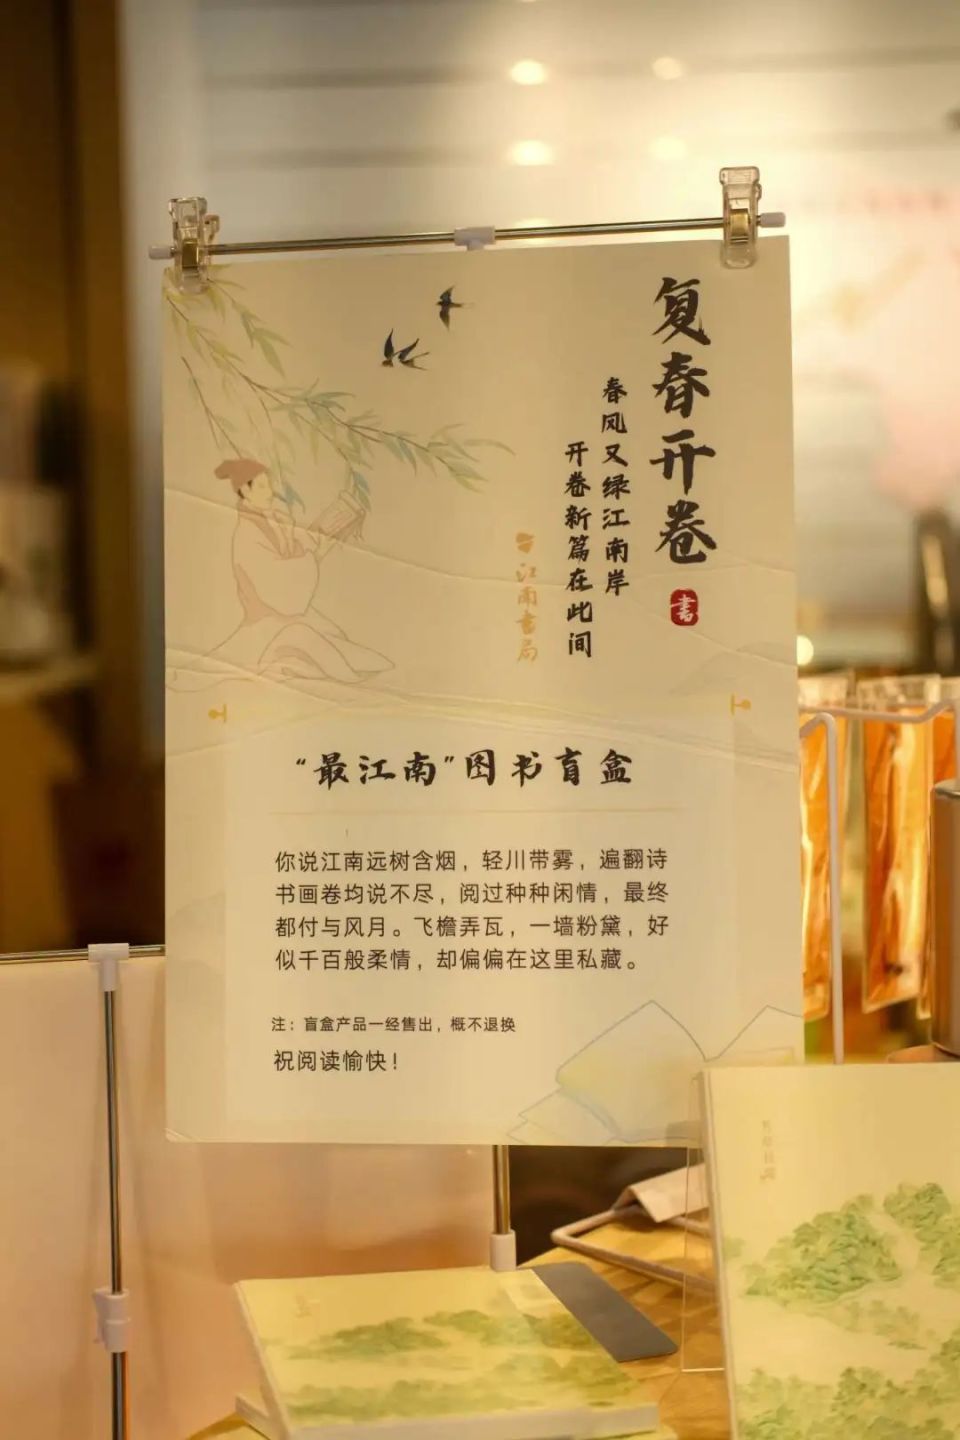 复春开卷
書
春风又绿江南岸
开卷新篇在此间
江南書局
“最江南”图书盲盒
你说江南远树含烟，轻川带雾，遍翻诗
书画卷均说不尽，阅过种种闲情，最终
都付与风月。飞檐弄瓦，一墙粉黛，好
似千百般柔情，却偏偏在这里私藏。
注：盲盒产品一经售出，概不退换
祝阅读愉快！